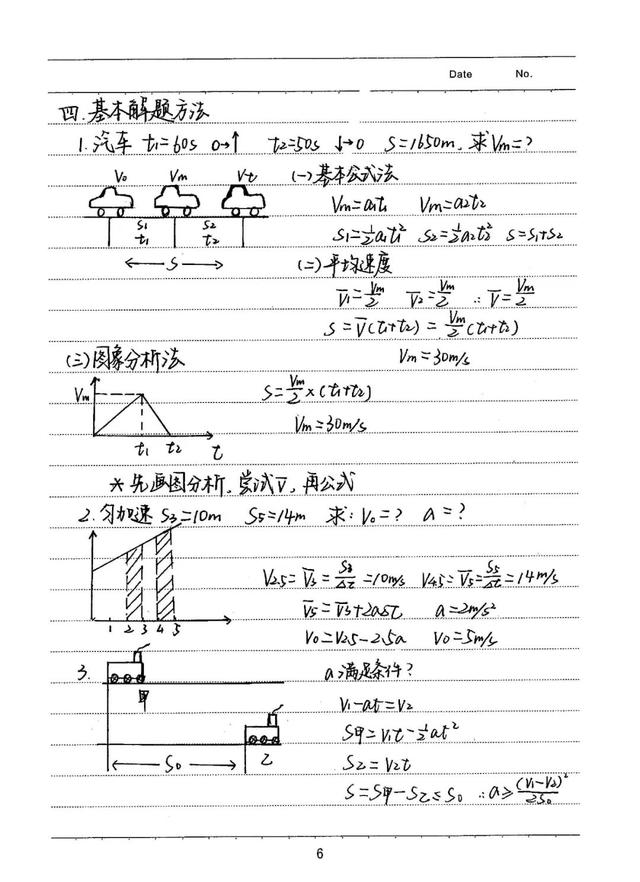 Date No.
四.基本解题方法
1.汽车 t₁=60s 0→↑ t₂=50s ↓→0 S=1650m,求Vm=?
V₀ Vm Vt
S₁ S₂
t₁ t₂
S
(一)基本公式法
Vm=a₁t₁ Vm=a₂t₂
S₁=½a₁t₁² S₂=½a₂t₂² S=S₁+S₂
(二)平均速度
V̄₁=Vm/2 V̄₂=Vm/2 ∴V̄=Vm/2
S=V̄(t₁+t₂)=Vm/2(t₁+t₂)
Vm=30m/s
(三)图象分析法
Vm
t₁ t₂ t
S=Vm/2×(t₁+t₂)
Vm=30m/s
*先画图分析,尝试V̄,再公式
2.匀加速 S₃=10m S₅=14m 求:V₀=? a=?
1 2 3 4 5
V2.5=V̄₃=S₃/Δt=10m/s V4.5=V̄₅=S₅/Δt=14m/s
V̄₅=V̄₃+2aΔt a=2m/s²
V₀=V2.5-2.5a V₀=5m/s
3.
甲
乙
S₀
a满足条件?
V₁-at=V₂
S甲=V₁t-½at²
S乙=V₂t
S=S甲-S乙≤S₀ ∴a≥(V₁-V₂)²/2S₀
6